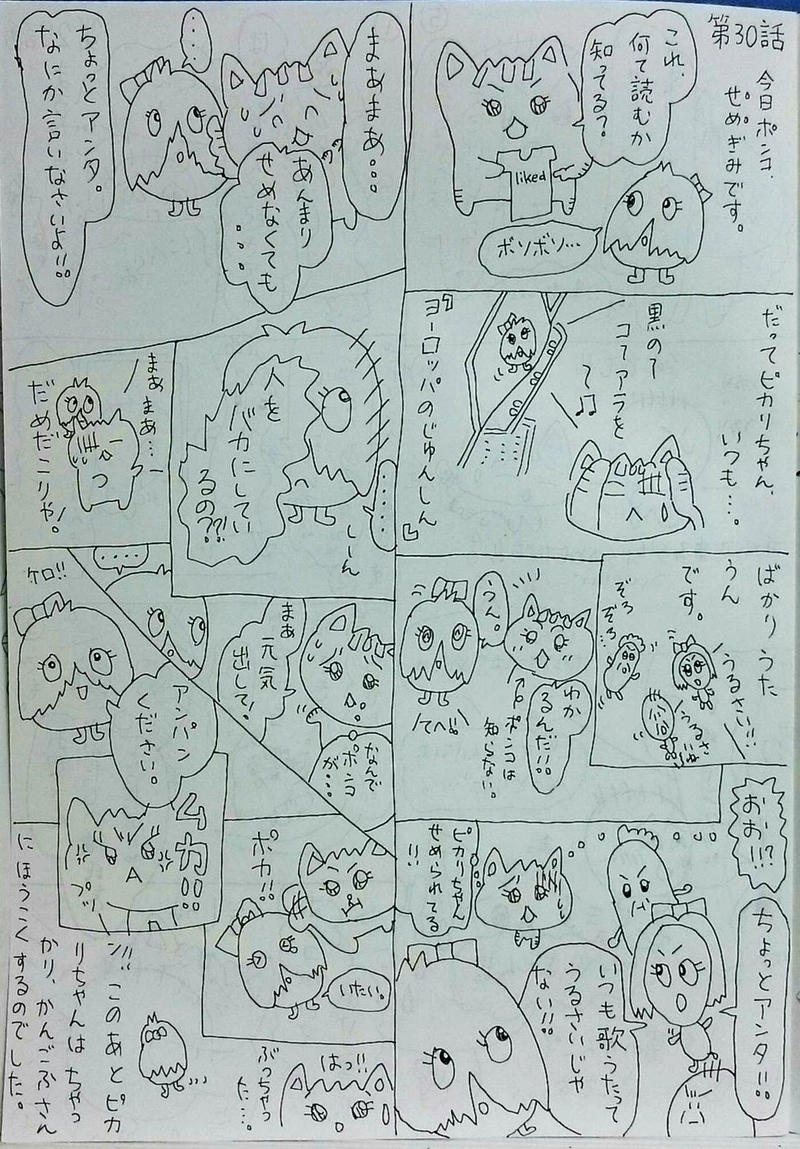 第30話
今日ポンコ、
ぜめぎみです。
これ、
何て読むか
知ってる?
liked
ボソボソ…
だってピカリちゃん、
いつも…。
黒の〜
コアラを
〜♫
『ヨーロッパのじゅんしん』
ばかりうた
うん
です。
うるさい!!
うるさいね
ぞろ
ぞろ…
うん。
わか
るんだ!!
ポンコは
知らない。
てへ!!
おお!!?
ちょっとアンタ!!
いつも歌うたって
うるさいじゃ
ない!!
ピカリちゃん
せめられてる
!!
まあまあ…
あんまり
せめなくても
…。
・・・
ちょっとアンタ。
なにか言いなさいよ!!
・・・・
しーん
人を
バカにしてい
るの??!
まあまあ…
だめだこりゃ!
まあ
元気
出して!
なんで
ポンコ
が…
・・・・
ケロ!!
アンパン
ください。
ムカ!!
プッ
ン!!
ポカ!!
いたい。
はっ!!
ぶっちゃっ
た…。
このあとピカ
りちゃんはちゃっ
かり、かんごふさん
にほうこくするのでした。